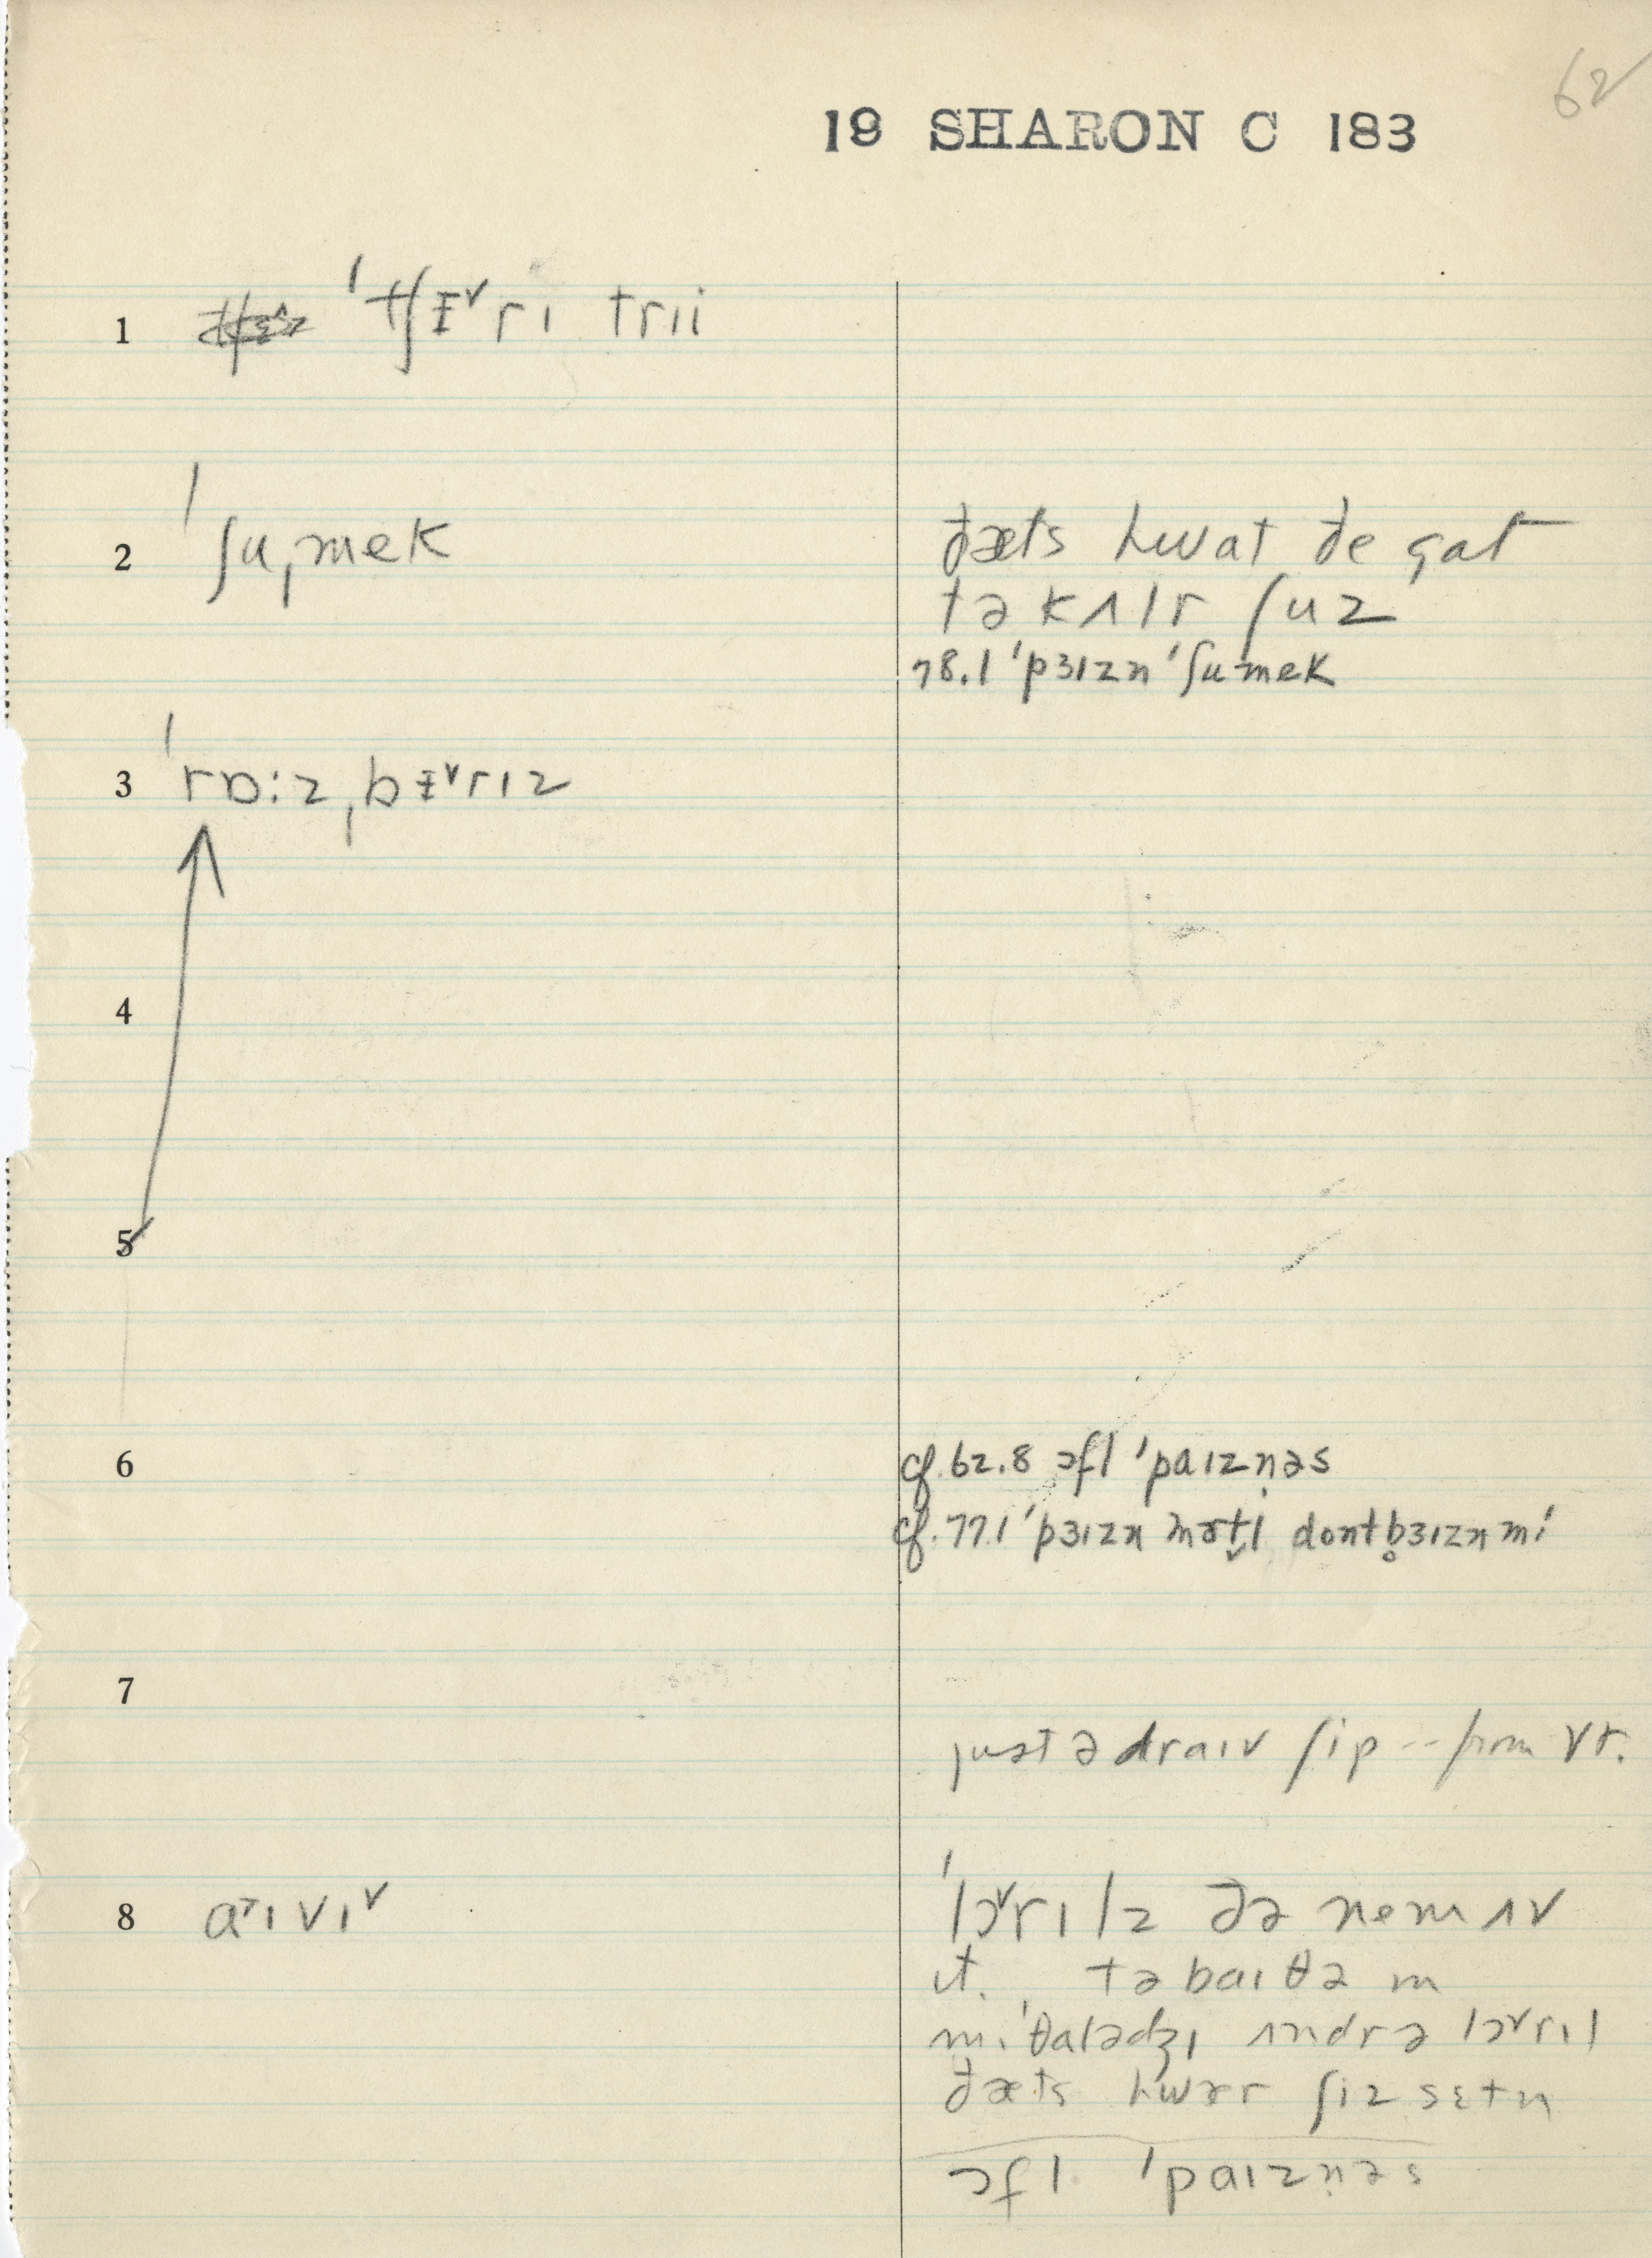 62
19 SHARON C 183
1 ˈtʃɪ̵ˇrɪ trii
2 ˈʃuˌmek
ðæts hwat ðe gat
tə kʌlr ʃuz
78.1 ˈpɜɪzn ˈʃumek
3 ˈrɒ:zˌbɪ̵ˇrɪz
4
5
6
cf. 62.8 ɔfl ˈpaɪzn̩əs
cf. 77.1 ˈpɜɪzn mɚt̬l dontb̥ɜɪzn mi
7
just ə draɪv ʃip -- from Vt.
8 a˃ɪvɪˇ
ˈlɔˇrɪlz ðə nem ʌv
ɪt. tə baɪ ðə m
mɪˈθalədʒɪ ʌndr ə lɔˇrɪl
ðæts hwɛr ʃiz sɛtn
ɔfl ˈpaɪzn̩əs